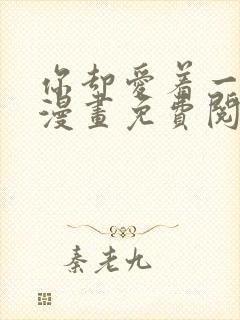 你却愛着一
漫畫免費閱
秦老九